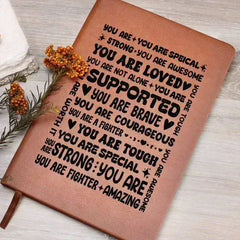 YOU ARE + YOU ARE SPEICAL
STRONG · YOU ARE AWESOME
YOU ARE LOVED
YOU ARE NOT ALONE + YOU ARE
SUPPORTED
YOU ARE BRAVE
YOU ARE COURAGEOUS
YOU ARE A FIGHTER
YOU ARE TOUGH
YOU ARE SPECIAL
STRONG: YOU ARE
YOU ARE FIGHTER + AMAZING
YOU ARE TOUGH
YOU ARE AWESOME